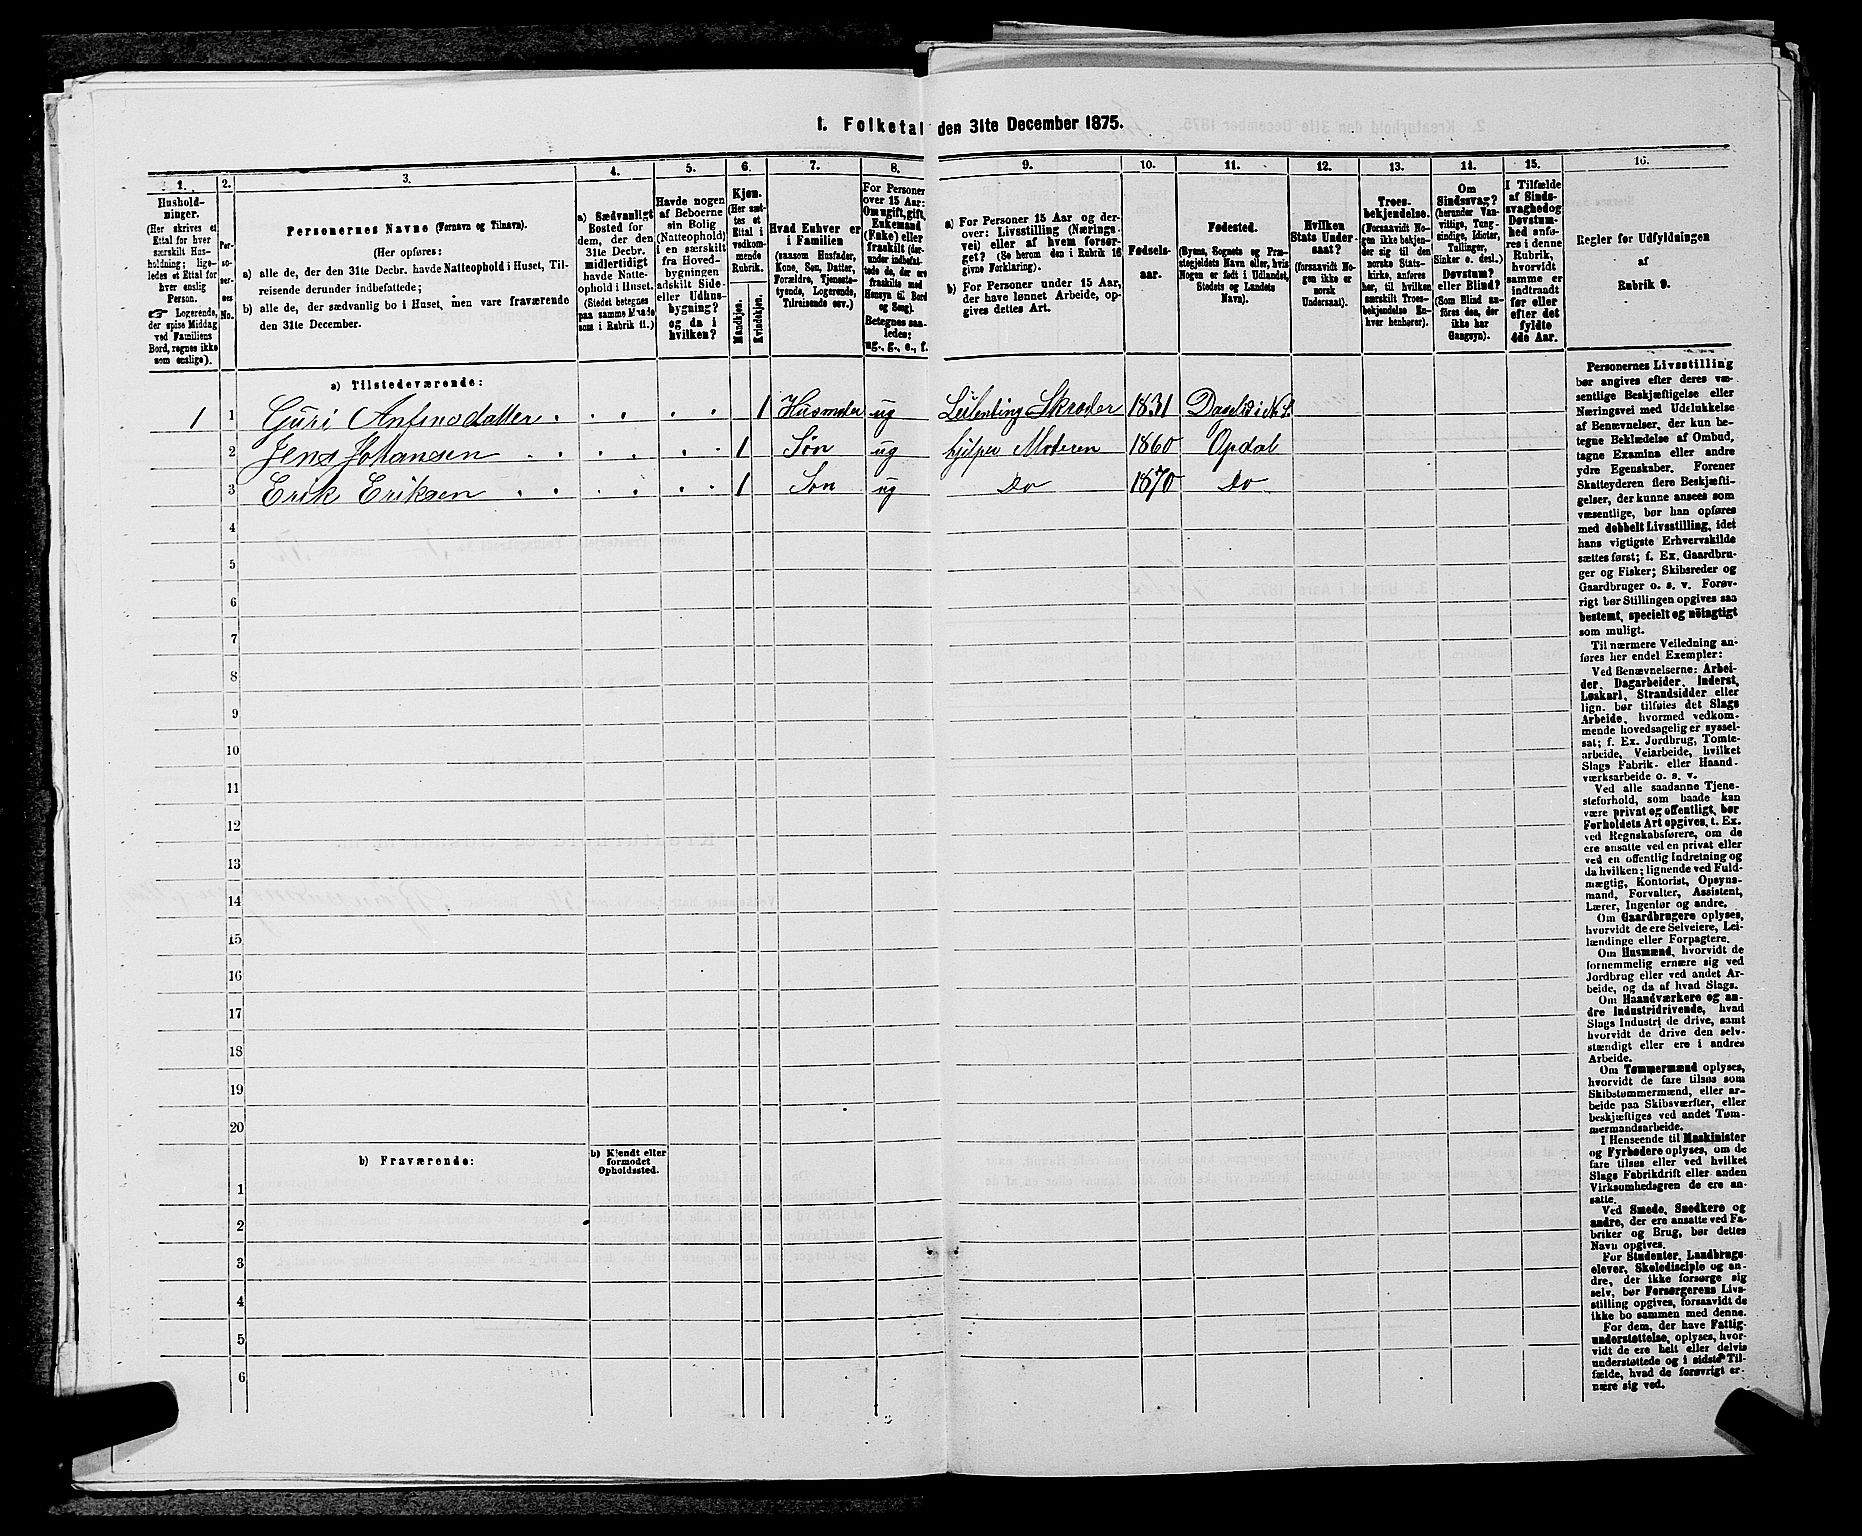 1. Folketal den 31te December 1875.
1.
Hushold-
ninger.
(Her skrives et
Ettal for hver
særskilt Hus-
holdning; lige-
ledes et Ettal for
hver enslig
Person.
☞ Logerende,
der spise Middag
ved Familiens
Bord, regnes ikke
som enslige).
2.
Per-
so-
ner-
nes
No.
3.
Personernes Navne (Fornavn og Tilnavn).
(Her opføres:
a) alle de, der den 31te Decbr. havde Natteophold i Huset, Til-
reisende derunder indbefattede;
b) alle de, der sædvanlig bo i Huset, men vare fraværende
den 31te December.
4.
a) Sædvanligt
Bosted for
dem, der den
31te Decbr.
midlertidigt
havde Natte-
ophold i Huset.
(Stedet betegnes
paa samme Maade
som i Rubrik 11.)
5.
Havde nogen
af Beboerne
sin Bolig
(Natteophold)
i en særskilt
fra Hoved-
bygningen
adskilt Side-
eller Udhus-
bygning?
og da i
hvilken?
6.
Kjøn.
(Her sæt-
tes et
Ettal i
vedkom-
mende
Rubrik.
Mandkjøn.
Kvindekjøn.
7.
Hvad Enhver er
i Familien
(saasom Husfader,
Kone, Søn, Datter,
Forældre, Tjeneste-
tyende, Logerende,
Tilreisende osv.)
8.
For Personer
over 15 Aar:
Om ugift, gift,
Enkemand
(Enke) eller
fraskilt (der-
under indbefat-
tede de, der ere
fraskilte med
Hensyn til Bord
og Seng).
Betegnes saa-
ledes:
ug., g., e., f.
9.
a) For Personer 15 Aar og der-
over: Livsstilling (Nærings-
vei) eller af hvem forsør-
get? (Se herom den i Rubrik 16
givne Forklaring).
b) For Personer under 15 Aar,
der have lønnet Arbeide, op-
gives dettes Art.
10.
Fødsels-
aar.
11.
Fødested.
(Byens, Sognets og Præ-
stegjeldets Navn eller, hvis
Nogen er født i Udlandet,
Stedets og Landets
Navn).
12.
Hvilken
Stats Under-
saat?
(forsaavidt No-
gen ikke er
norsk
Undersaat).
13.
Troes-
bekjendelse.
(Forsaavidt No-
gen ikke bekjen-
der sig til den
norske Stats-
kirke, anføres
her, til hvilken
særskilt Troes-
bekjendelse En-
hver henhører).
14.
Om
Sindssvag?
(herunder Van-
vittige, Tung-
sindige, Idioter,
Tullinger,
Sinker o. desl.)
Døvstum?
eller Blind?
(Som Blind an-
føres den, der
ikke har
Gangsyn).
15.
I Tilfælde
af Sinds-
svaghed og
Døvstum-
hed anfø-
res i denne
Rubrik,
hvorvidt
samme er
indtraadt
før eller
efter det
fyldte
4de Aar.
16.
Regler for Udfyldningen
af
Rubrik 9.
a) Tilstedeværende:
1 1 Guri Anfinsdatter 1 Husmoder ug Leilending Skræder 1831
2 Jens Johansen 1 Søn ug hjelper Moderen 1860 Opdal
3 Erik Eriksen 1 Søn ug Do 1870 Do
4
5
6
7
8
9
10
11
12
13
14
15
16
17
18
19
20
b) Fraværende:
b) Kjendt eller
formodet
Opholdssted.
1
2
3
4
5
6
Personernes Livsstilling
bør angives efter deres væ-
sentlige Beskjæftigelse eller
Næringsvei med Udelukkelse
af Benævnelser, der kun be-
tegne Beklædelse af Ombud,
tagne Examina eller andre
ydre Egenskaber. Forener
Skatteyderen flere Beskjæfti-
gelser, der kunne ansees som
væsentlige, bør han opføres
med dobbelt Livsstilling, idet
hans vigtigste Erhvervskilde
sættes først; f. Ex. Gaardbru-
ger og Fisker; Skibsreder og
Gaardbruger o. s. v. Forøv-
rigt bør Stillingen opgives saa
bestemt, specielt og nöiagtigt
som muligt.
Til nærmere Veiledning an-
føres her endel Exempler:
Ved Benævnelserne: Arbei-
der, Dagarbeider, Inderst,
Løskarl, Strandsidder eller
lign. bør tilføies det Slags
Arbeide, hvormed vedkom-
mende hovedsagelig er syssel-
sat; f. Ex. Jordbrug, Tomte-
arbeide, Veiarbeide, hvilket
Slags Fabrik- eller Haand-
værksarbeide o. s. v.
Ved alle saadanne Tjene-
steforhold, som baade kan
være privat og offentligt, bør
Forholdets Art opgives, t. Ex.
ved Regnskabsførere, om de
ere ansatte ved en privat eller
ved en offentlig Indretning og
da hvilken; lignende ved Fuld-
mægtig, Kontorist, Opsyns-
mand, Forvalter, Assistent,
Lærer, Ingeniør og andre.
Om Gaardbrugere oplyses,
hvorvidt de ere Selveiere, Lei-
lændinge eller Forpagtere.
Om Husmænd, hvorvidt de
fornemmelig ernære sig ved
Jordbrug eller ved andet Ar-
beide, og da af hvad Slags.
Om Haandværkere og an-
dre Industridrivende, hvad
Slags Industri de drive, samt
hvorvidt de drive den selv-
stændigt eller ere i andres
Arbeide.
Om Tømmermænd oplyses,
hvorvidt de fare tilsøs som
Skibstømmermænd, eller ar-
beide paa Skibsværfter, eller
beskjæftiges ved andet Tøm-
mermandsarbeide.
I Henseende til Maskinister
og Fyrbødere oplyses, om de
fare tilsøs eller ved hvilket
Slags Fabrikdrift eller anden
Virksomhedsgren de ere an-
satte.
Ved Smede, Snedkere og
andre, der ere ansatte ved Fa-
briker og Brug, bør dettes
Navn opgives.
For Studenter, Landbrugs-
elever, Skoledisciple og an-
dre, der ikke forsørge sig
selv, bør Forsørgerens Livs-
stilling opgives, forsaavidt de
ikke bo sammen med denne.
For dem, der have Fattig-
understøttelse, oplyses, hvor-
vidt de ere helt eller delvis
understøttede og i sidste Til-
fælde, hvad de forøvrigt er-
nære sig ved.